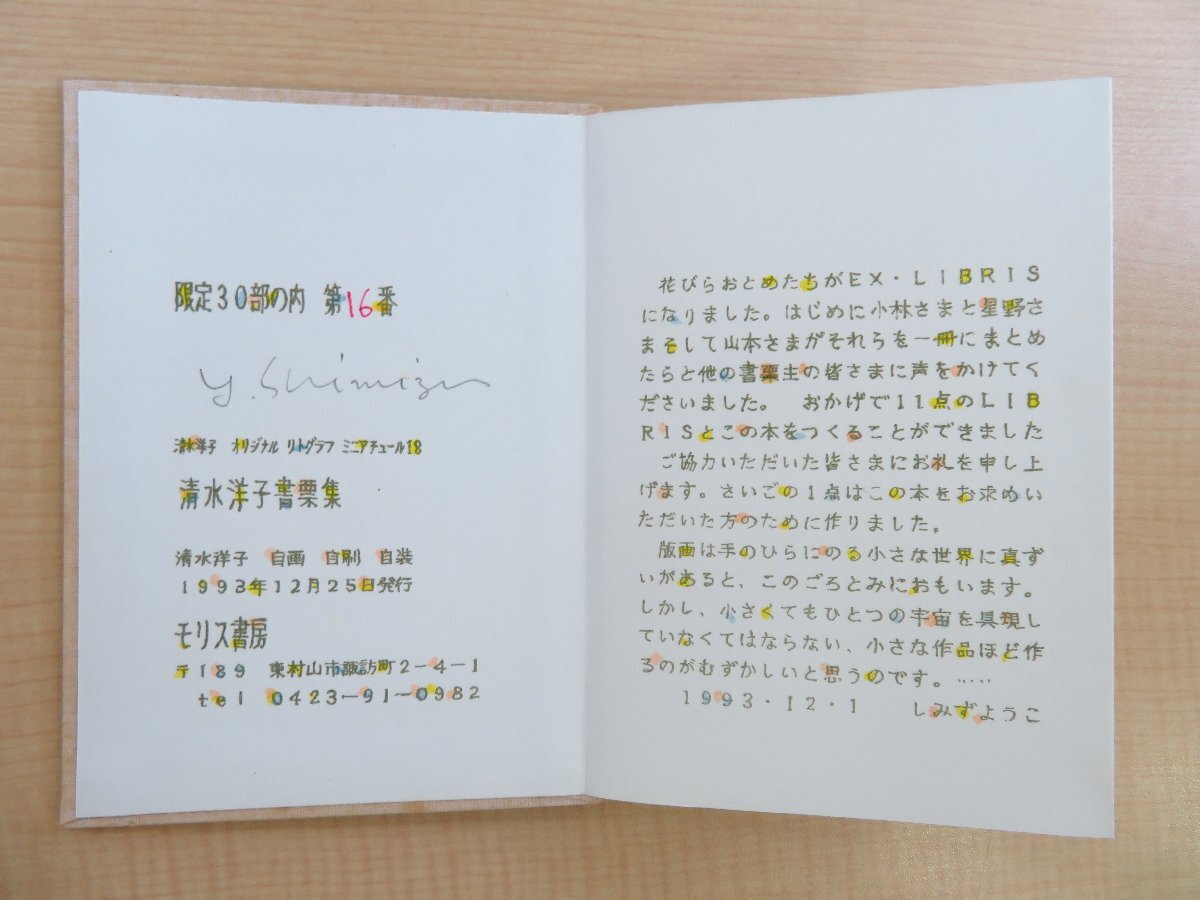 限定30部の内 第16番
Y. Shimizu
清水洋子 オリジナル リトグラフ ミニアチュール18
清水洋子書票集
清水洋子 自画 自刷 自装
1993年12月25日発行
モリス書房
〒189 東村山市諏訪町2-4-1
tel 0423-91-0982
花びらおとめたちがEX・LIBRIS
になりました。はじめに小林さまと星野さ
まそして山本さまがそれらを一冊にまとめ
たらと他の書票主の皆さまに声をかけてく
ださいました。 おかげで11点のLIB
RISとこの本をつくることができました
ご協力いただいた皆さまにお礼を申し上
げます。さいごの1点はこの本をお求めい
ただいた方のために作りました。
版画は手のひらにのる小さな世界に真ず
いがあると、このごろとみにおもいます。
しかし、小さくてもひとつの宇宙を具現し
ていなくてはならない、小さな作品ほど作
るのがむずかしいと思うのです。……
1993・12・1 しみずようこ